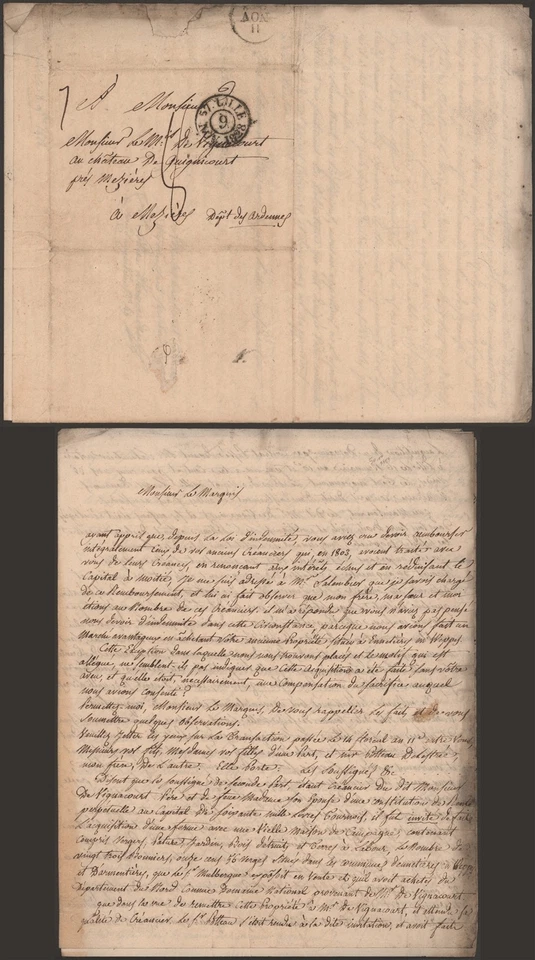 NOV
11
7 A. Monsieur
57. LILLE
9
NOV. 1828
Monsieur Le Mis De Vignacourt
au château De Guignicourt
près Mezières
à Mezières Dépt des Ardennes
Monsieur Le Marquis
ayant appris que, depuis La Loi D'indemnité, vous aviez cru devoir rembourser
intégralement ceux de vos anciens Créanciers qui, en 1803, avoient traité avec
vous de leurs Créances, en renonçant aux intérêts échus et en réduisant le
Capital à moitié, je me suis adressé à Mr. que je savois chargé
de ce Remboursement, et lui ai fait observer que mon frère, ma sœur et moi
étions au Nombre de ces Créanciers. il m'a répondu que vous n'aviez pas pensé
nous devoir d'indemnité dans cette Circonstance, parceque nous avions fait un
Marché avantageux en achetant votre ancienne Propriété située à
Cette Exception dans laquelle nous nous trouvons placés et le motif qui est
allégué, ne semblent-ils pas indiquer que Cette acquisition a été faite sans votre
aveu, et qu'elle étoit, nécessairement, une Compensation du Sacrifice auquel
nous avions consenti?
Permettez-moi, Monsieur Le Marquis, de vous rappeler Les faits, et de vous
soumettre quelques observations.
Veuillez jetter les yeux sur La Transaction passée Le 14 floréal an 11 entre Vous,
Messieurs vos fils, Mesdames vos filles d'une Part, et Mr.
mon frère, De L'autre. Elle porte. Les Soussignés &c
Disent que les soussignés de seconde Part, étant Créanciers du dit Monsieur
De Vignacourt Père et de feue Madame son épouse d'une Constitution de Rente
perpétuelle au Capital de soixante mille Livres tournois, il fut invité de faire
L'acquisition d'une ferme avec une Vieille Maison de Campagne, contenant
compris Verger, Pature, Jardin, Bois détruits et Terres à Labour, Le Nombre de
vingt trois Bonniers, onze cens Verges situés dans les communes
et D'armentières, que Le Sr. exposoit en Vente et qu'il avoit acheté, du
Département du Nord Comme Domaine National provenant de Mr. De Vignacourt
que dans la vue de remettre Cette Propriété à Mr. De Vignacourt, et attendu sa
qualité de Créancier, Le Sr. s'étoit rendu à la dite invitation, et avoit faite